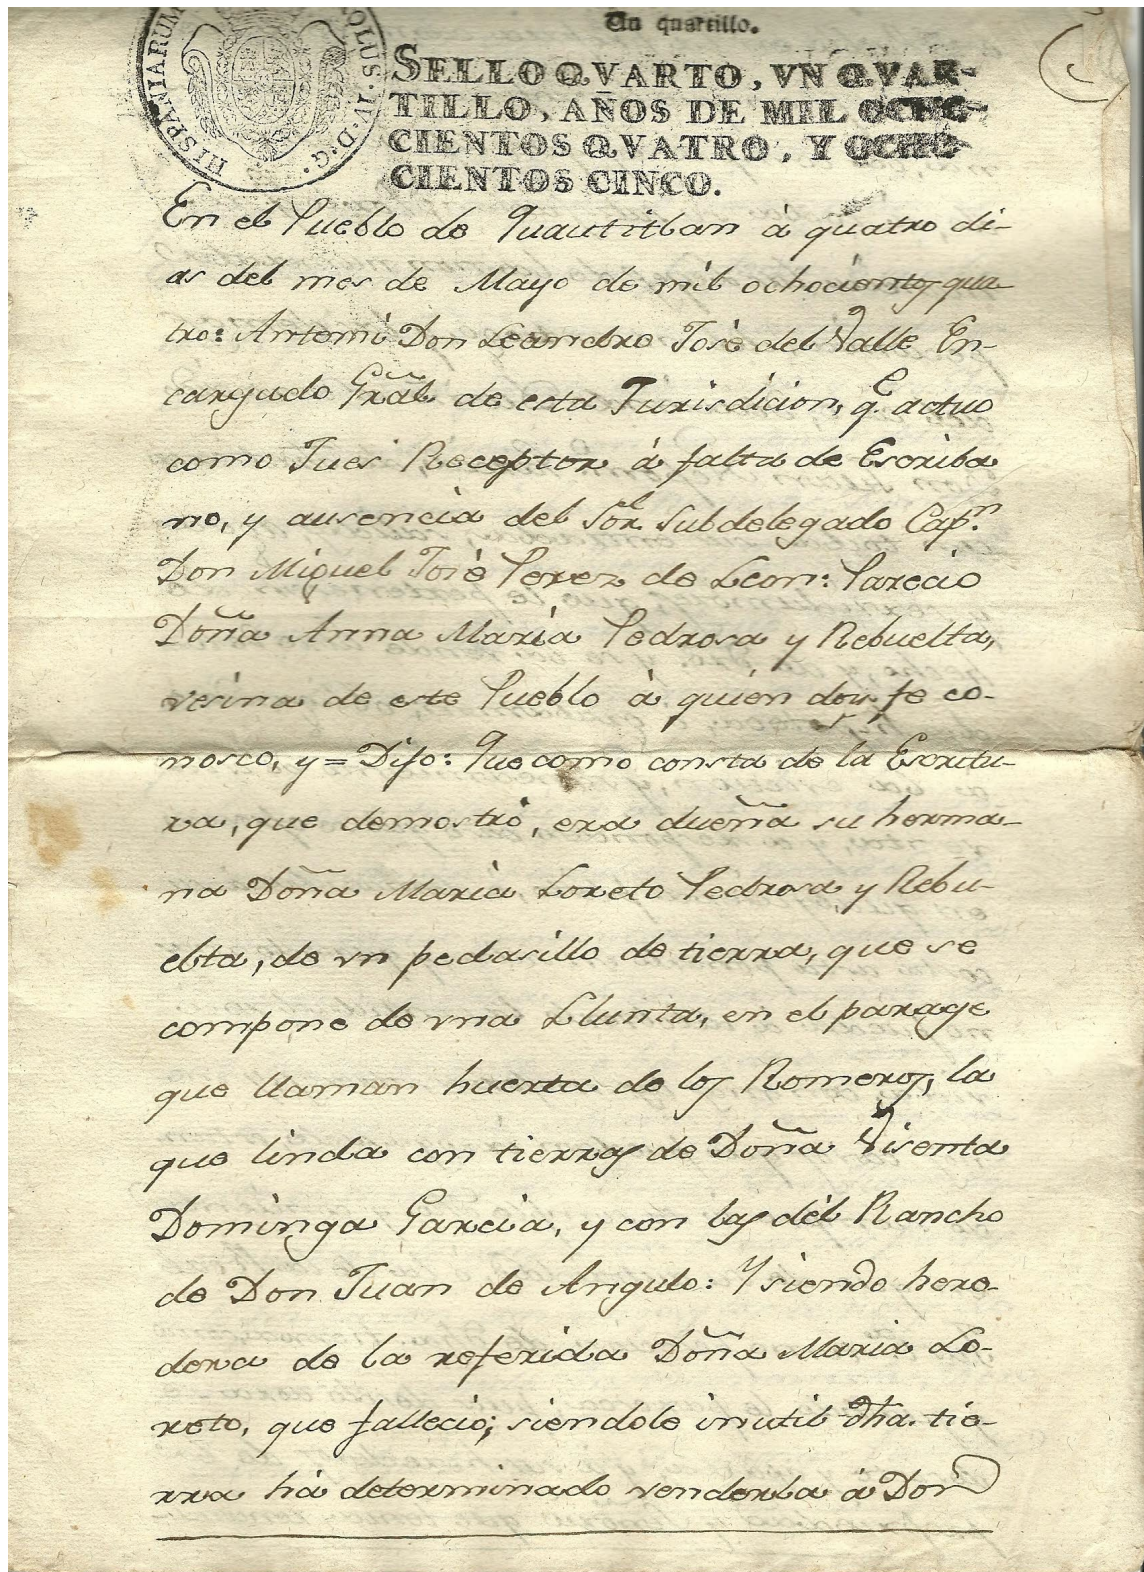 Un quartillo.
HISPANIARUM
CAROLUS·IV·D·G·
SELLO QVARTO, VN QVAR-
TILLO, AÑOS DE MIL OCHO-
CIENTOS QVATRO, Y OCHO-
CIENTOS CINCO.
En el Pueblo de Quautitlan à quatro di-
as del mes de Mayo de mil ochocientos qua
tro: Antemi Don Leandro Josè del Valle En-
cargado Grãl de esta Jurisdicion, q.e actuo
como Jues Receptor à falta de Escriba
no, y ausencia del Sor. Subdelegado Cap.n
Don Miguel Josè Perez de Leon: Parecio
Doña Anna Maria Pedrosa y Rebuelta,
vesina de este Pueblo à quien doy fe co-
nosco, y = Dijo: Que como consta de la Escritu-
ra, que demostrò, era dueña su herma-
na Doña Maria Loreto Pedrosa y Rebu-
elta, de vn pedasillo de tierra, que se
compone de vna Llunta, en el parage
que llaman huerta de los Romeros, la
que linda con tierras de Doña Visenta
Dominga Garcia, y con las dèl Rancho
de Don Juan de Angulo: Y siendo here-
dera de la referida Doña Maria Lo-
reto, que fallecio; siendole inutil dha. tie-
rra hà determinado venderla à Don